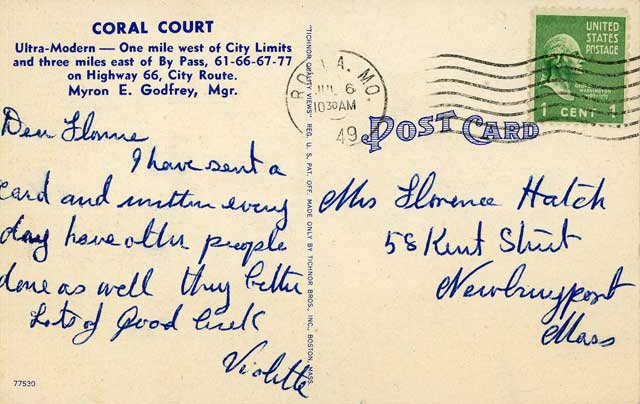 CORAL COURT
Ultra-Modern — One mile west of City Limits
and three miles east of By Pass, 61-66-67-77
on Highway 66, City Route.
Myron E. Godfrey, Mgr.
Dear
I have sent a
card and written every
day have other people
done as well they better
Lots of Good luck
Violette
77530
"TICHNOR QUALITY VIEWS" REG. U. S. PAT. OFF. MADE ONLY BY TICHNOR BROS., INC., BOSTON, MASS.
ROLLA, MO.
JUL 6
10 30 AM
49
POST CARD
UNITED
STATES
POSTAGE
1 CENT 1
Mrs Florence Hatch
58 Kent Street
Newburyport
Mass